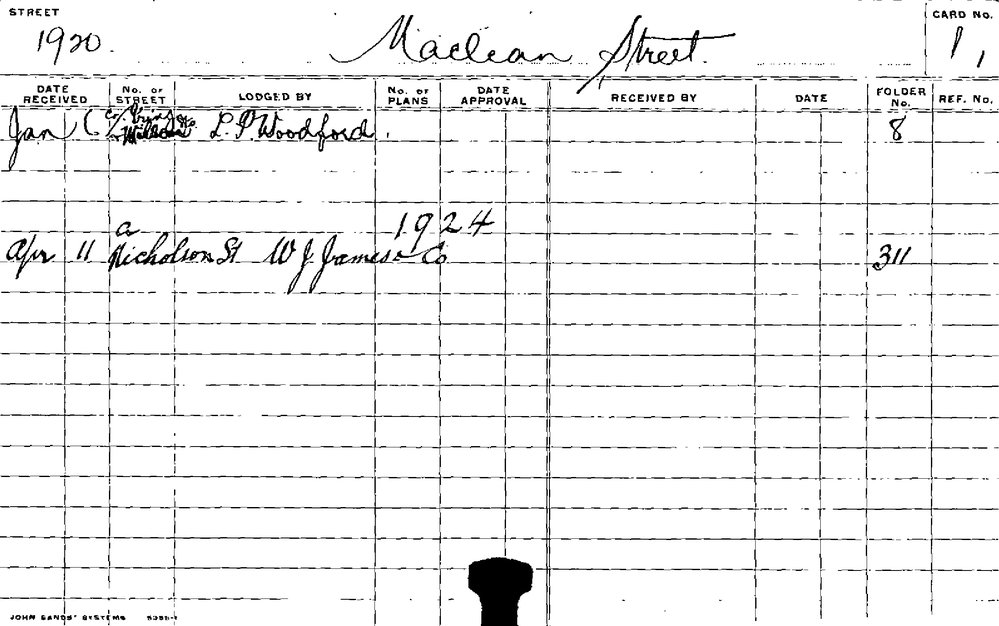 STREET
CARD No.
1920. Maclean Street. 1,
DATE RECEIVED No. OF STREET LODGED BY No. OF PLANS DATE APPROVAL RECEIVED BY DATE FOLDER No. REF. No.
Jan L. P. Woodford. 8
1924
a
Apr 11 Nicholson St W J James & Co 311
JOHN SANDS' SYSTEMS